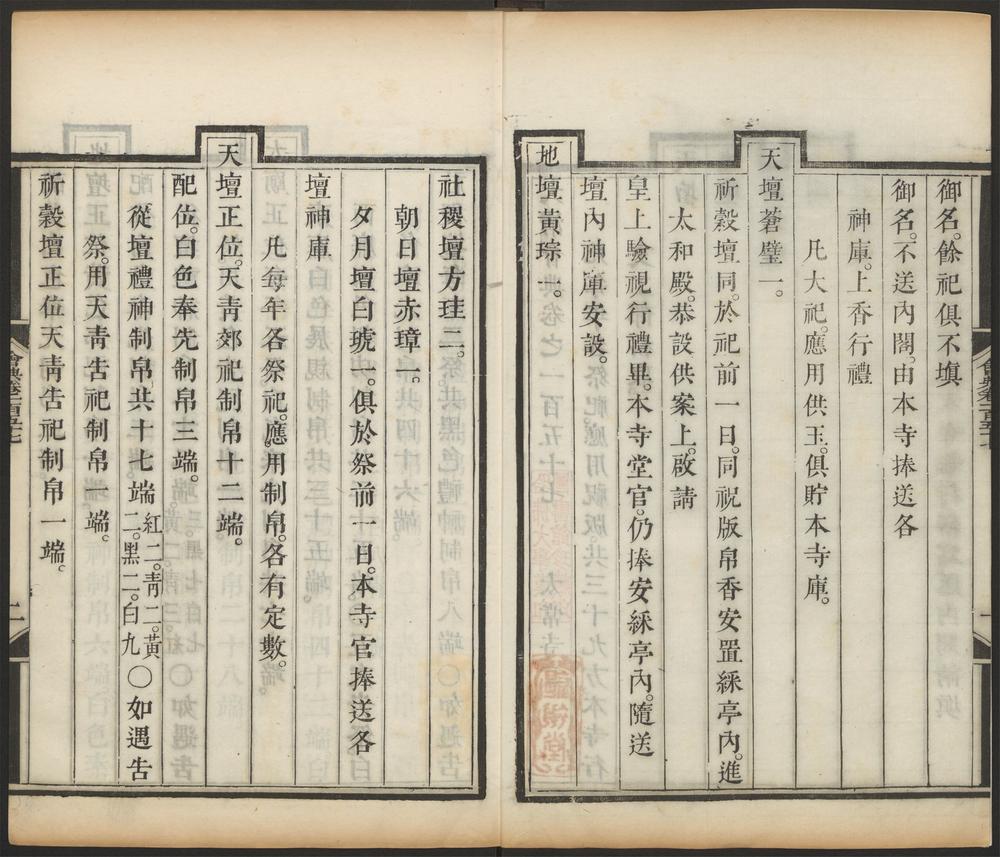 御名。餘祀俱不塡
御名。不送內閣。由本寺捧送各
神庫。上香行禮
凡大祀。應用供玉。俱貯本寺庫。
天壇蒼璧一。
祈穀壇同。於祀前一日。同祝版帛香安置綵亭內。進
太和殿。恭設供案上。啟請
皇上驗視行禮畢。本寺堂官。仍捧安綵亭內。隨送
壇內神庫安設。
地壇黃琮一。
社稷壇方珪二。
朝日壇赤璋一。
夕月壇白琥一。俱於祭前一日。本寺官捧送各
壇神庫
凡每年各祭祀。應用制帛。各有定數。
天壇正位。天靑郊祀制帛十二端。
配位。白色奉先制帛三端。
從壇禮神制帛共十七端紅二。靑二。黃二。黑二。白九〇如遇告
祭。用天靑告祀制帛一端。
祈穀壇正位天靑告祀制帛一端。